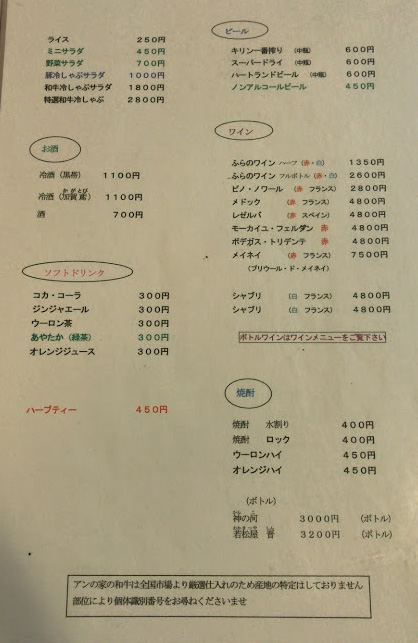 ライス 250円
ミニサラダ 450円
野菜サラダ 700円
豚冷しゃぶサラダ 1000円
和牛冷しゃぶサラダ 1800円
特選和牛冷しゃぶ 2800円
お酒
冷酒（黒帯） 1100円
冷酒（加賀鳶） 1100円
酒 700円
ソフトドリンク
コカ・コーラ 300円
ジンジャエール 300円
ウーロン茶 300円
あやたか（緑茶） 300円
オレンジジュース 300円
ハーブティー 450円
ビール
キリン一番搾り （中瓶） 600円
スーパードライ （中瓶） 600円
ハートランドビール （中瓶） 600円
ノンアルコールビール 450円
ワイン
ふらのワイン ハーフ（赤・白） 1350円
ふらのワイン フルボトル（赤・白） 2600円
ピノ・ノワール （赤 フランス） 2800円
メドック （赤 フランス） 4800円
レゼルバ （赤 スペイン） 4800円
モーカイユ・フェルダン 赤 4800円
ボデガス・トリデンテ 赤 4800円
メイネイ （赤 フランス） 7500円
（プリウール・ド・メイネイ）
シャブリ （白 フランス） 4800円
シャブリ （白 フランス） 4800円
ボトルワインはワインメニューをご覧下さい
焼酎
焼酎 水割り 400円
焼酎 ロック 400円
ウーロンハイ 450円
オレンジハイ 450円
（ボトル）
神の河 3000円 （ボトル）
若松屋 3200円 （ボトル）
アンの家の和牛は全国市場より厳選仕入れのため産地の特定はしておりません
部位により個体識別番号をお尋ねくださいませ